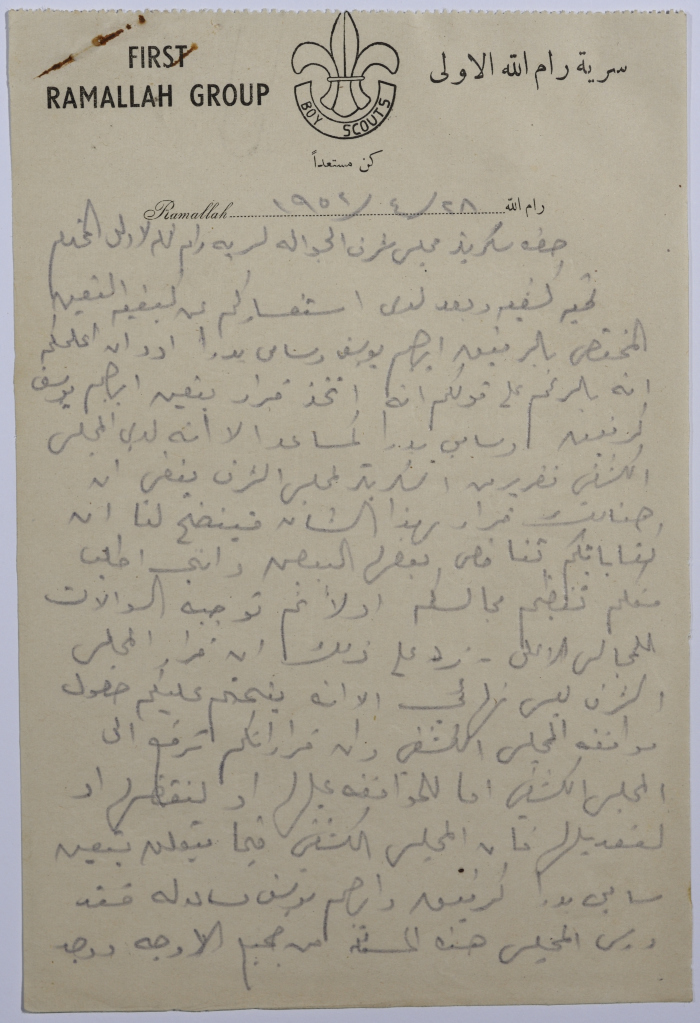 FIRST
RAMALLAH GROUP
BOY SCOUTS
سرية رام الله الاولى
كن مستعداً
Ramallah ١٩٥٢/٤/٢٨ رام الله
حضرة سكرتير مجلس شرف الجوالة لسرية رام الله الاولى المحترم
تحية كشفية وبعد لدى استفساركم عن كيفية التعيين
المختص بالرفيقين ابراهيم يوسف وسامي اود ان اعلمكم
انه بالرغم على قولكم انه اتخذ قرار بتعين ابراهيم يوسف
كرفيق وسامي كمساعد الا انه لدى المجلس
الكشفي تقرير من سكرتير مجلس الشرف ينفي ان
هنالك قرار بهذا الشأن فيتضح لنا ان
كتاباتكم تناقض بعضها البعض وانني اطلب
منكم تنظيم مجالسكم اولاً ثم توجيه السوالات
للمجالس الاعلى - زد على ذلك ان قرار المجلس
الشرف ليس نهائي الا انه يتحتم عليكم حصول
موافقة المجلس الكشفي وان قراراتكم ترفع الى
المجلس الكشفي اما للموافقة عليها او لنقضها او
لتعديلها فان المجلس الكشفي فيما يتعلق بتعين
سامي كرفيق وابراهيم يوسف فقد
درس المجلس هذه المسئلة من جميع الاوجه ووجد